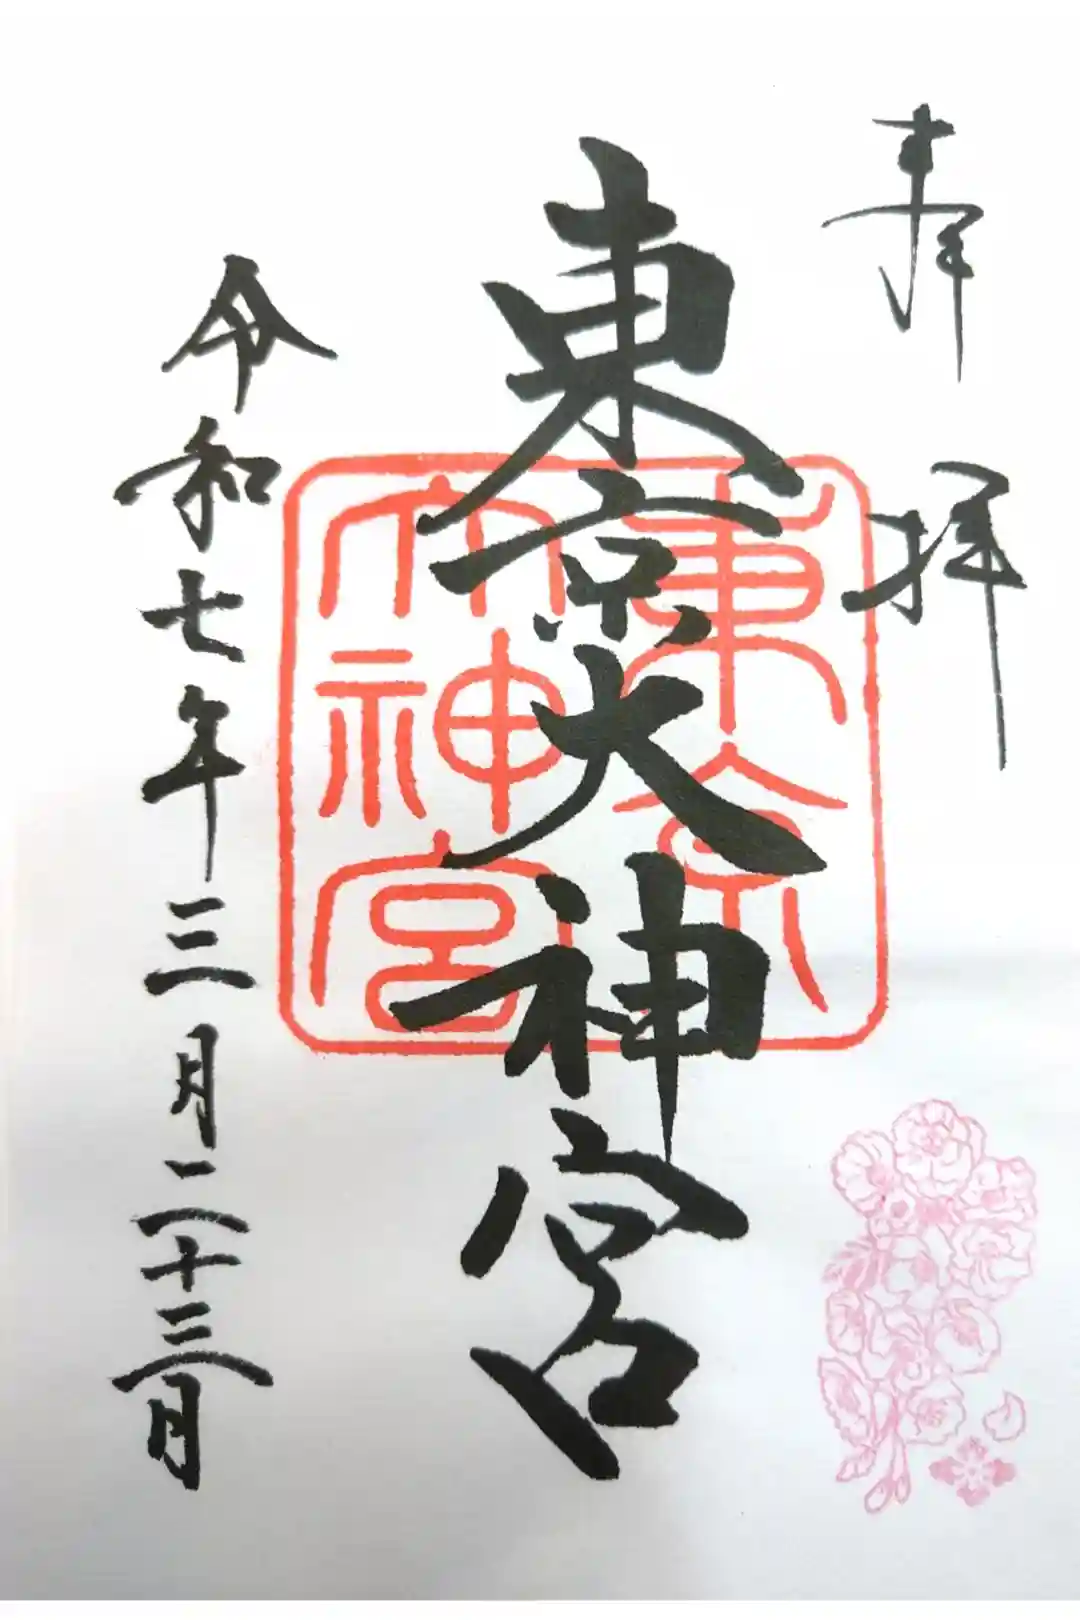 奉拝
東京大神宮
東京
大神宮
令和七年三月二十三日